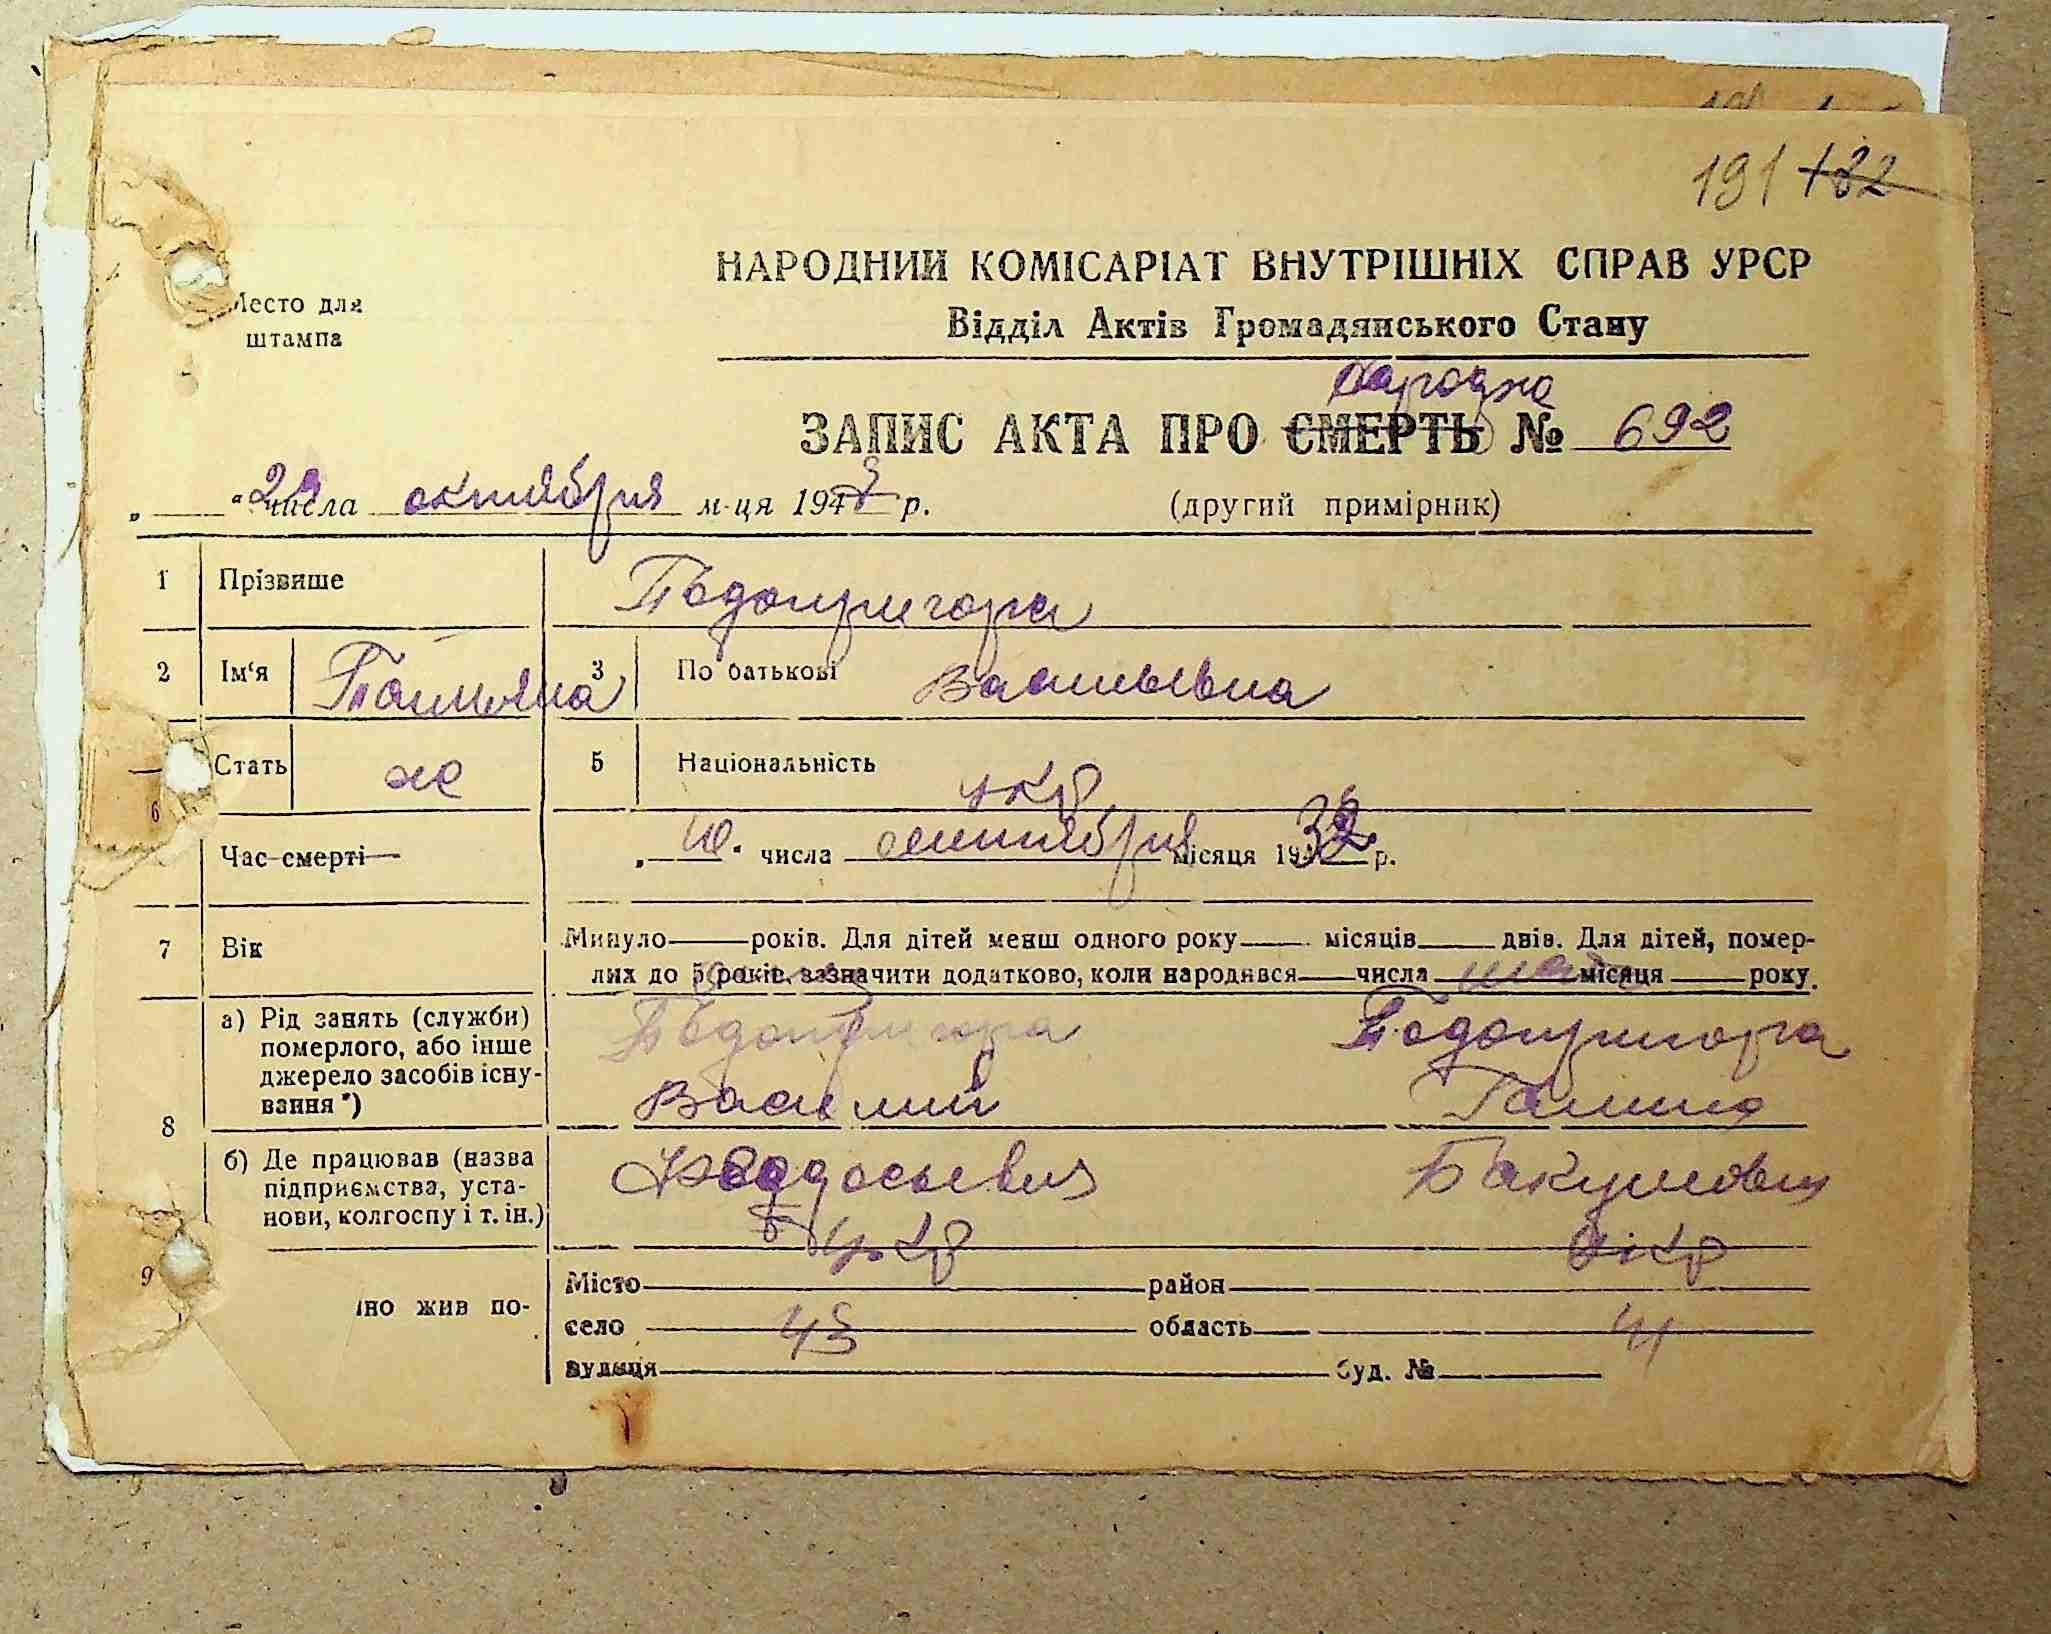 191 182
НАРОДНИЙ КОМІСАРІАТ ВНУТРІШНІХ СПРАВ УРСР
Место для
штампа
Відділ Актів Громадянського Стану
ЗАПИС АКТА ПРО СМЕРТЬ № 692
числа октября м-ця 194 р.
(другий примірник)
1 Прізвише Подопригора
2 Ім‘я Татьяна 3 По батькові Васильевна
Стать ж 5 Національність укр.
6 Час смерті „10“ числа сентября місяця 19 р.
7 Вік Минуло років. Для дітей менш одного року місяців днів. Для дітей, помер-
лих до 5 років, зазначити додатково, коли народився числа місяця року.
а) Рід занять (служби)
померлого, або інше
джерело засобів існу-
вання *)
Подопригора Подопригора
Василий Галина
8
б) Де працював (назва
підприємства, уста-
нови, колгоспу і т. ін.)
укр укр
9
Місто район
іно жив по-
село 43 область 41
вулиця буд. №